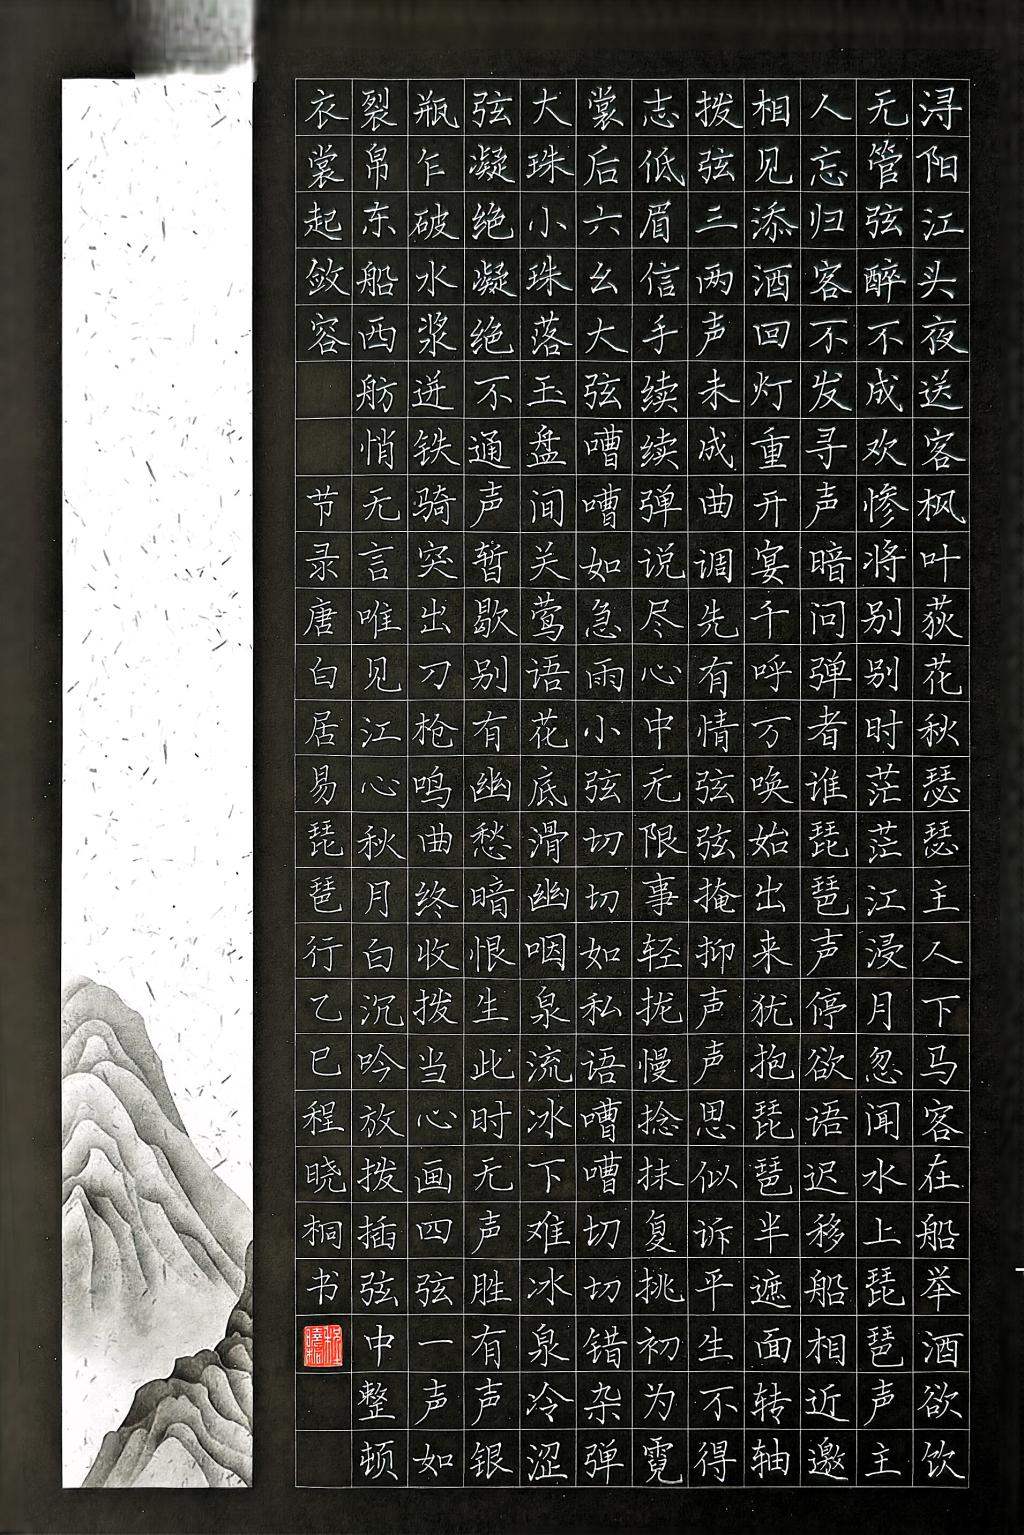 浔阳江头夜送客枫叶荻花秋瑟瑟主人下马客在船举酒欲饮
无管弦醉不成欢惨将别别时茫茫江浸月忽闻水上琵琶声主
人忘归客不发寻声暗问弹者谁琵琶声停欲语迟移船相近邀
相见添酒回灯重开宴千呼万唤始出来犹抱琵琶半遮面转轴
拨弦三两声未成曲调先有情弦弦掩抑声声思似诉平生不得
志低眉信手续续弹说尽心中无限事轻拢慢捻抹复挑初为霓
裳后六幺大弦嘈嘈如急雨小弦切切如私语嘈嘈切切错杂弹
大珠小珠落玉盘间关莺语花底滑幽咽泉流冰下难冰泉冷涩
弦凝绝凝绝不通声暂歇别有幽愁暗恨生此时无声胜有声银
瓶乍破水浆迸铁骑突出刀枪鸣曲终收拨当心画四弦一声如
裂帛东船西舫悄无言唯见江心秋月白沉吟放拨插弦中整顿
衣裳起敛容
节录唐白居易琵琶行乙巳程晓桐书